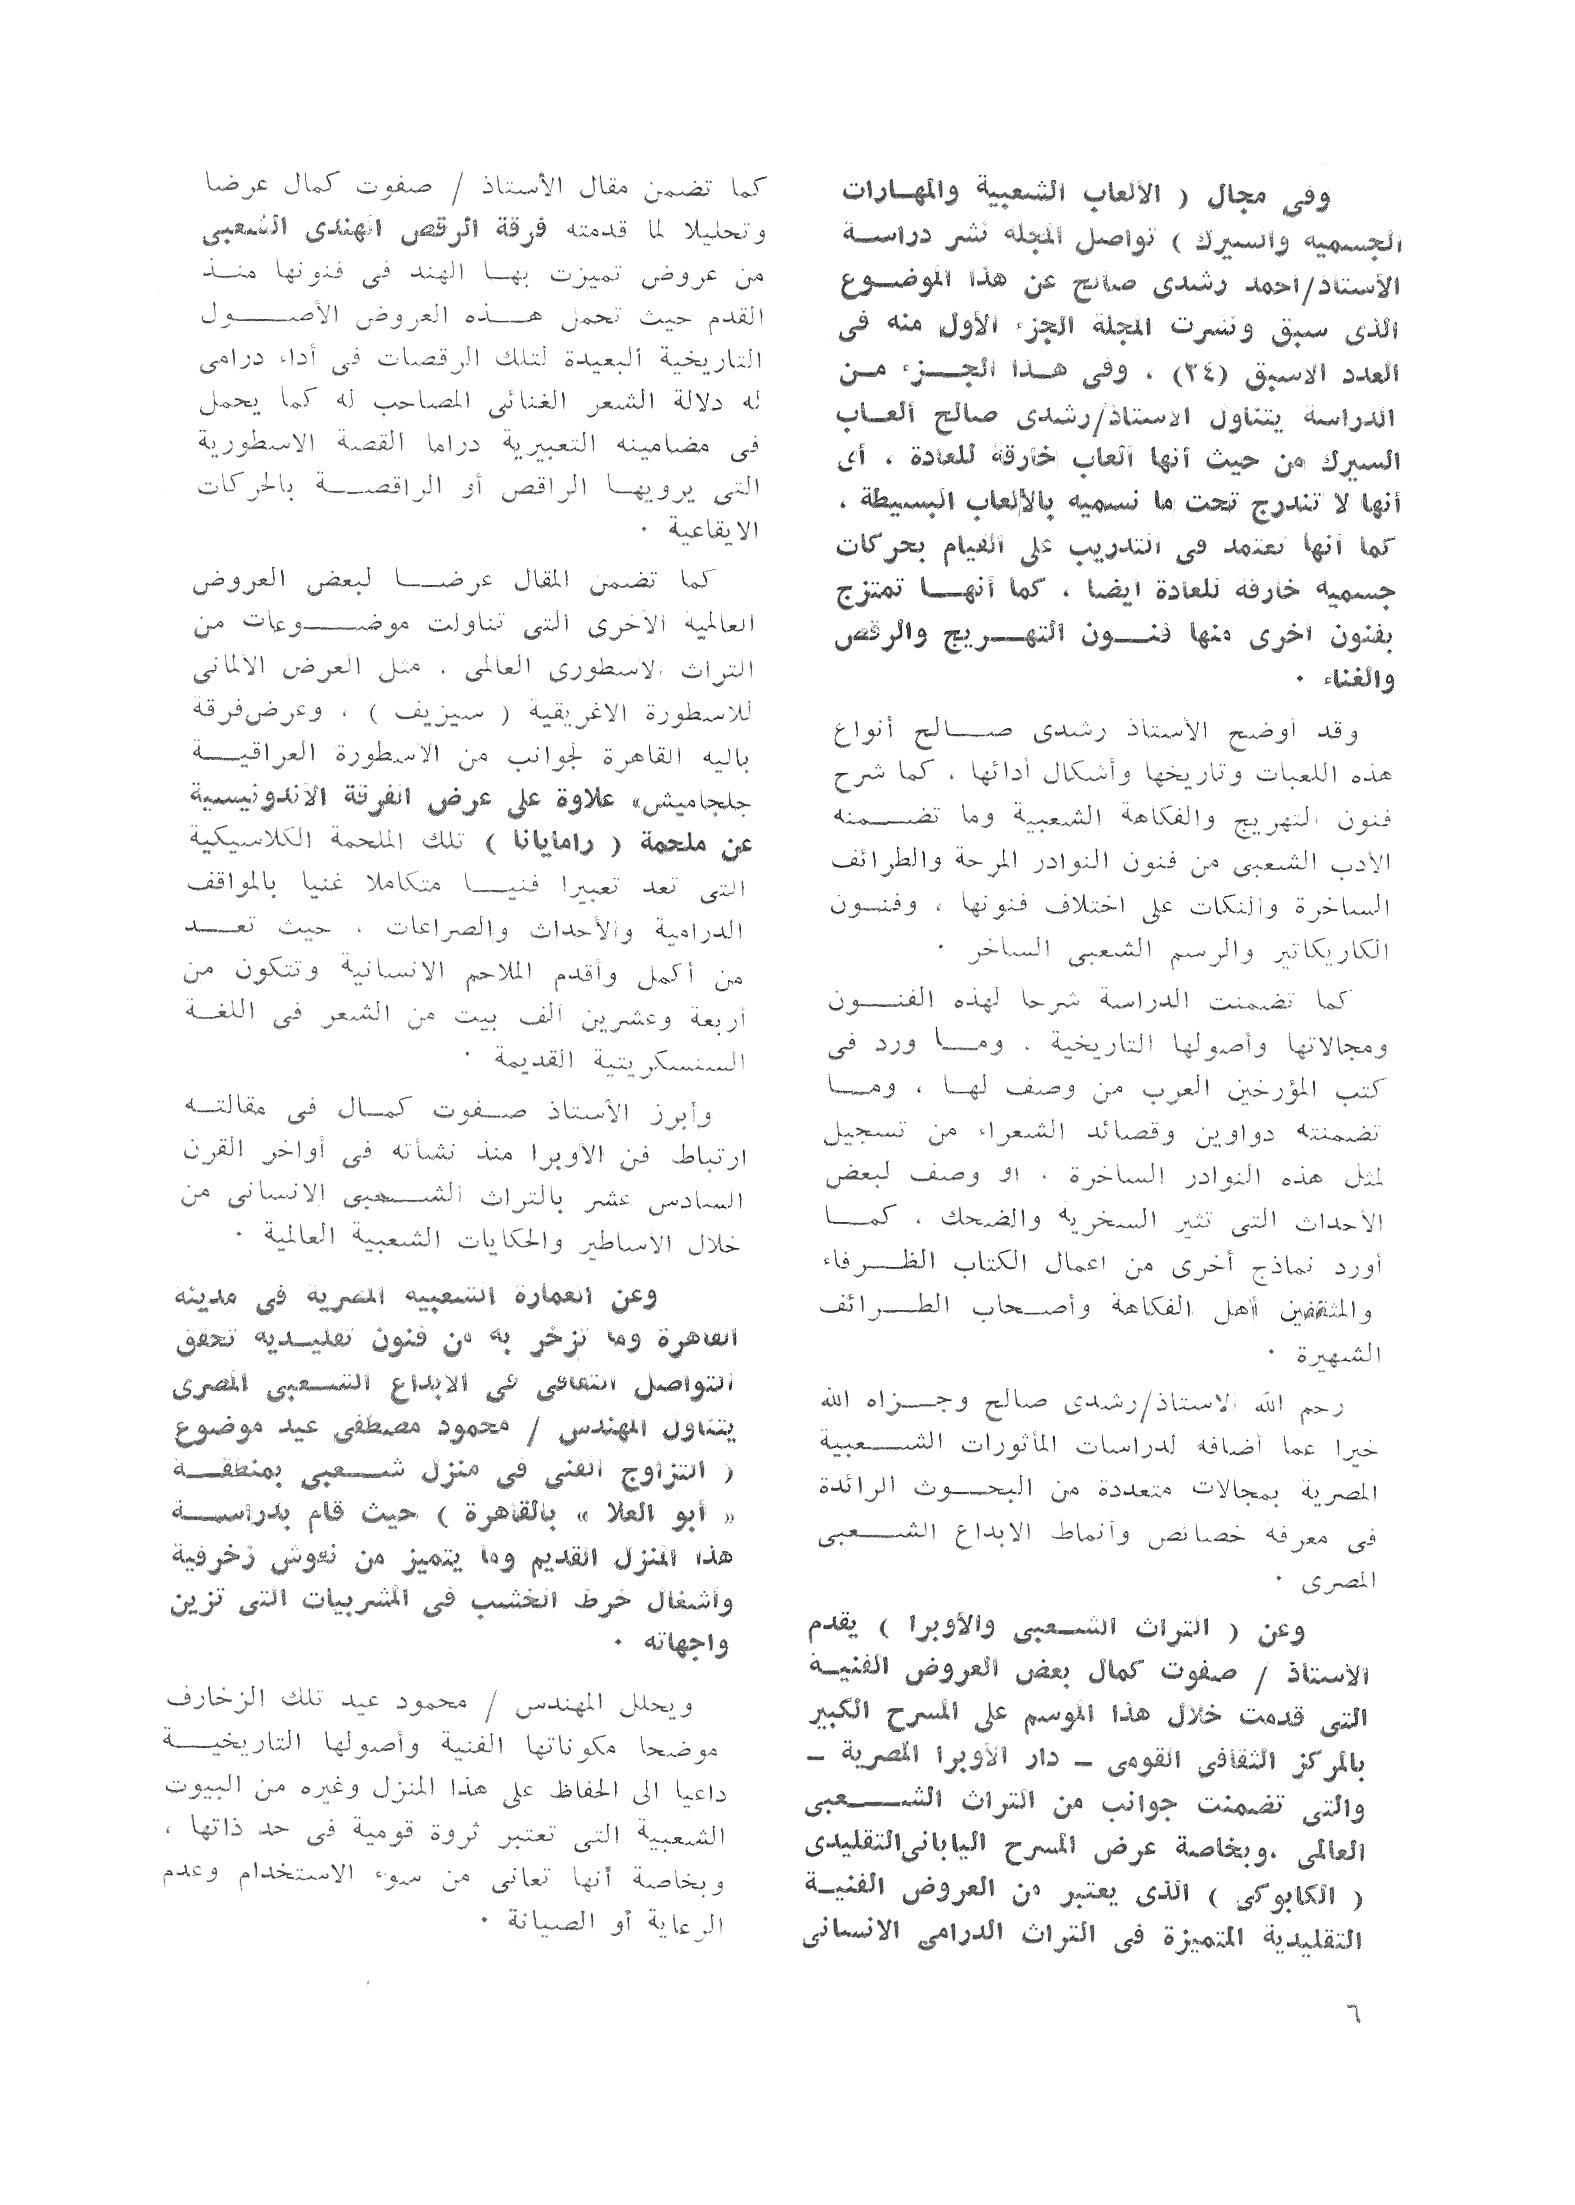 وفى مجال ( الألعاب الشعبية والمهارات
الجسميه والسيرك ) تواصل المجله نشر دراسة
الأستاذ/احمد رشدى صالح عن هذا الموضوع
الذى سبق ونشرت المجلة الجزء الأول منه فى
العدد الاسبق (٢٤) ، وفى هذا الجزء من
الدراسة يتناول الاستاذ/رشدى صالح ألعاب
السيرك من حيث أنها ألعاب خارقة للعادة ، أى
أنها لا تندرج تحت ما نسميه بالألعاب البسيطة ،
كما أنها تعتمد فى التدريب على القيام بحركات
جسميه خارقه للعادة ايضا ، كما أنها تمتزج
بفنون اخرى منها فنون التهريج والرقص
والغناء ٠
وقد أوضح الأستاذ رشدى صالح أنواع
هذه اللعبات وتاريخها وأشكال أدائها ، كما شرح
فنون التهريج والفكاهة الشعبية وما تضمنه
الأدب الشعبى من فنون النوادر المرحة والطرائف
الساخرة والنكات على اختلاف فنونها ، وفنون
الكاريكاتير والرسم الشعبى الساخر ٠
كما تضمنت الدراسة شرحا لهذه الفنون
ومجالاتها وأصولها التاريخية ، وما ورد فى
كتب المؤرخين العرب من وصف لها ، وما
تضمنته دواوين وقصائد الشعراء من تسجيل
لمثل هذه النوادر الساخرة ، او وصف لبعض
الأحداث التى تثير السخريه والضحك ، كما
أورد نماذج أخرى من اعمال الكتاب الظرفاء
والمثقفين أهل الفكاهة وأصحاب الطرائف
الشهيرة ٠
رحم الله الاستاذ/رشدى صالح وجزاه الله
خيرا عما اضافه لدراسات المأثورات الشعبية
المصرية بمجالات متعددة من البحوث الرائدة
فى معرفة خصائص وأنماط الابداع الشعبى
المصرى ٠
وعن ( التراث الشعبى والأوبرا ) يقدم
الأستاذ / صفوت كمال بعض العروض الفنية
التى قدمت خلال هذا الموسم على المسرح الكبير
بالمركز الثقافى القومى – دار الأوبرا المصرية –
والتى تضمنت جوانب من التراث الشعبى
العالمى ،وبخاصة عرض المسرح اليابانى التقليدى
( الكابوكى ) الذى يعتبر من العروض الفنية
التقليدية المتميزة فى التراث الدرامى الانسانى
كما تضمن مقال الأستاذ / صفوت كمال عرضا
وتحليلا لما قدمته فرقة الرقص الهندى الشعبى
من عروض تميزت بها الهند فى فنونها منذ
القدم حيث تحمل هذه العروض الأصول
التاريخية البعيدة لتلك الرقصات فى أداء درامى
له دلالة الشعر الغنائى المصاحب له كما يحمل
فى مضامينه التعبيرية دراما القصة الاسطورية
التى يرويها الراقص أو الراقصة بالحركات
الايقاعية ٠
كما تضمن المقال عرضا لبعض العروض
العالمية الأخرى التى تناولت موضوعات من
التراث الاسطورى العالمى ، مثل العرض الألمانى
للاسطورة الاغريقية ( سيزيف ) ، وعرض فرقة
باليه القاهرة لجوانب من الأسطورة العراقية
جلجاميش» علاوة على عرض الفرقة الأندونيسية
عن ملحمة ( رامايانا ) تلك الملحمة الكلاسيكية
التى تعد تعبيرا فنيا متكاملا غنيا بالمواقف
الدرامية والأحداث والصراعات ، حيث تعد
من أكمل وأقدم الملاحم الانسانية وتتكون من
أربعة وعشرين ألف بيت من الشعر فى اللغة
السنسكريتية القديمة ٠
وأبرز الأستاذ صفوت كمال فى مقالته
ارتباط فن الأوبرا منذ نشأته فى أواخر القرن
السادس عشر بالتراث الشعبى الانسانى من
خلال الأساطير والحكايات الشعبية العالمية ٠
وعن العمارة الشعبيه المصرية فى مدينه
القاهرة وما تزخر به من فنون تقليديه تحقق
التواصل الثقافى فى الابداع الشعبى المصرى
يتناول المهندس / محمود مصطفى عيد موضوع
( التزاوج الفنى فى منزل شعبى بمنطقة
« أبو العلا » بالقاهرة ) حيث قام بدراسة
هذا المنزل القديم وما يتميز من نقوش زخرفية
واشغال خرط الخشب فى المشربيات التى تزين
واجهاته ٠
ويحلل المهندس / محمود عيد تلك الزخارف
موضحا مكوناتها الفنية وأصولها التاريخية
داعيا الى الحفاظ على هذا المنزل وغيره من البيوت
الشعبية التى تعتبر ثروة قومية فى حد ذاتها ،
وبخاصة أنها تعانى من سوء الاستخدام وعدم
الرعاية أو الصيانة ٠
٦